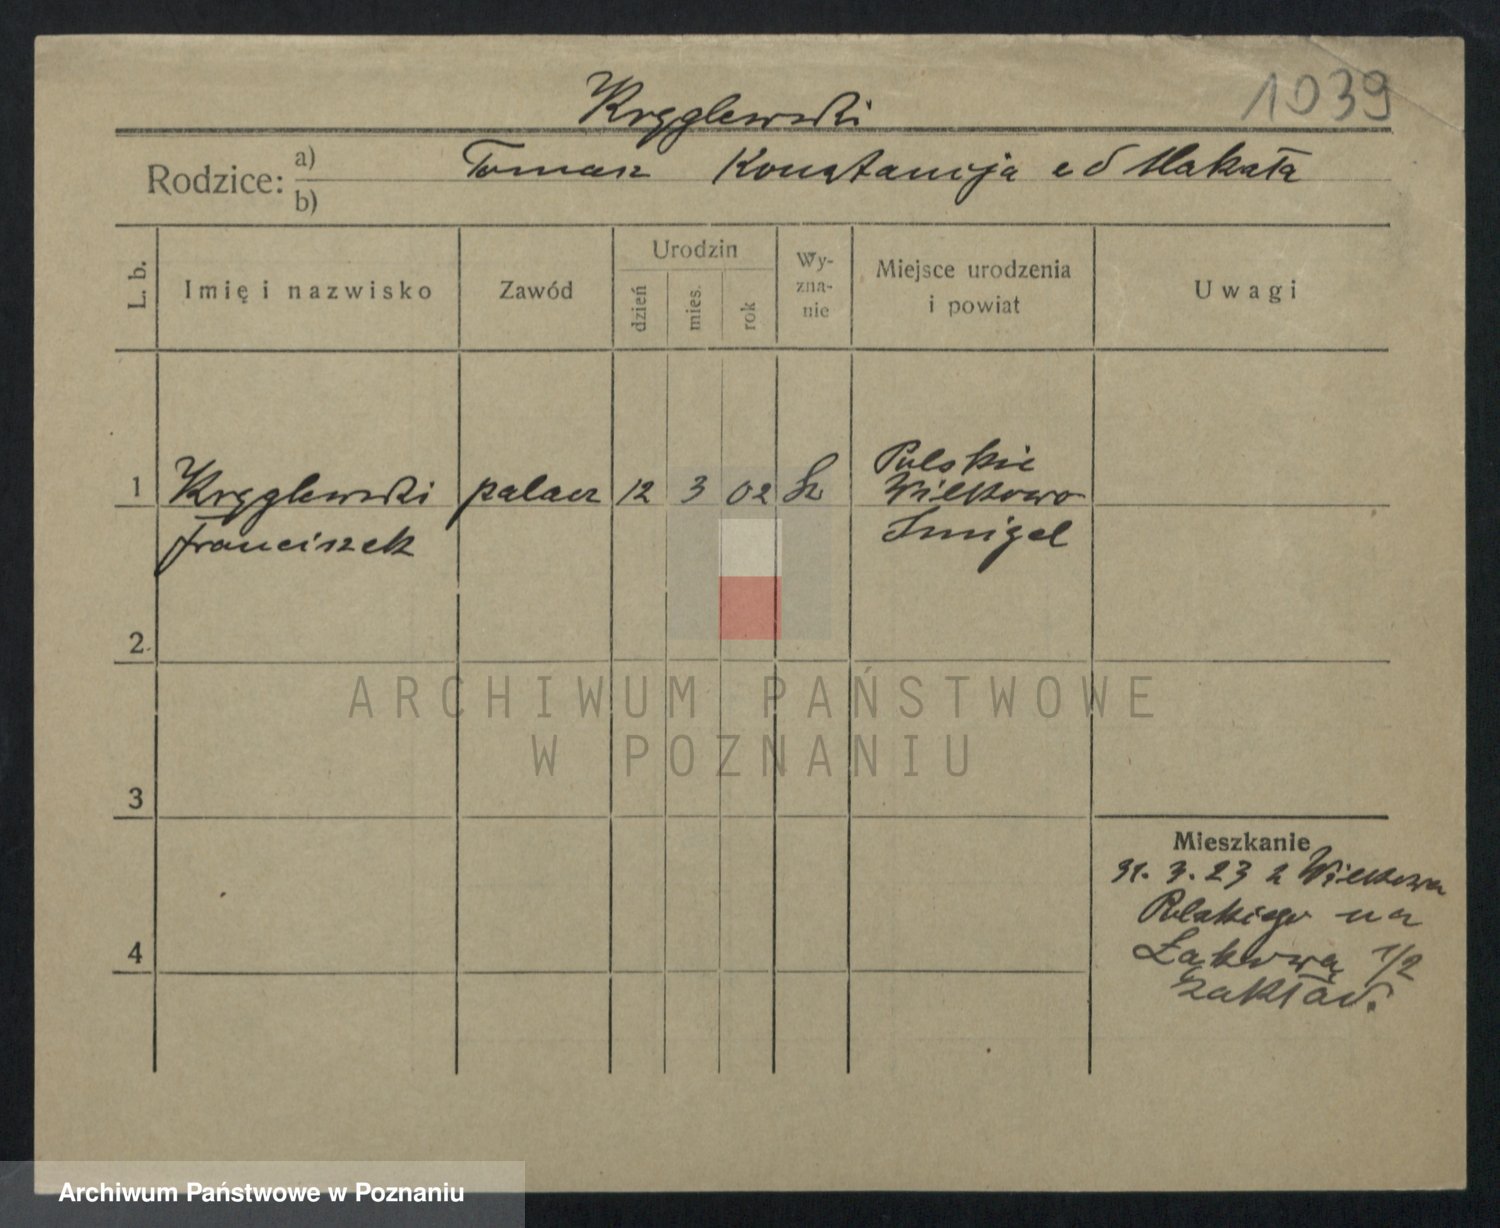 1039
Kręglewski
Rodzice: a) Tomasz Konstancja
b)
L. b.
Imię i nazwisko
Zawód
Urodzin
dzień
mies.
rok
Wy-
zna-
nie
Miejsce urodzenia
i powiat
Uwagi
1 Kręglewski palacz 12 3 02
Franciszek
Polskie
Wilkowo
Śmigel
2.
3
4
Mieszkanie
31. 3. 23 z Wilkowa
Polskiego na
Łąkową 1/2
zakład.
ARCHIWUM PAŃSTWOWE
W POZNANIU
Archiwum Państwowe w Poznaniu